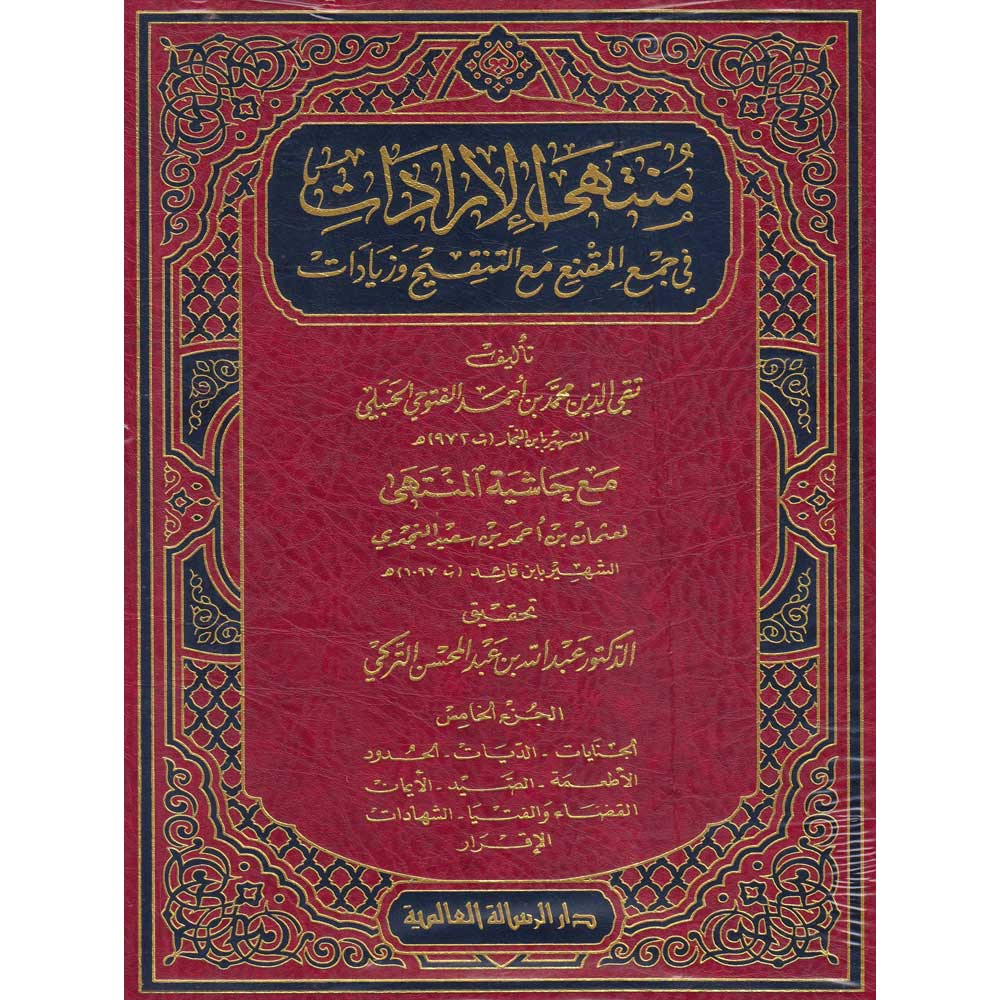 مُنتَهَى الإِرَادَاتِ
في جمع المقنع مع التنقيح وزيادات
تأليف
تقي الدين محمد بن أحمد الفتوحي الحنبلي
الشهير بابن النجار (ت ٩٧٢) هـ
مع حاشية المنتهى
لعثمان بن أحمد بن سعيد النجدي
الشهير بابن قائد (ت ١٠٩٧) هـ
تحقيق
الدكتور عبد الله بن عبد المحسن التركي
الجزء الخامس
الجنايات - الديات - الحدود
الأطعمة - الصيد - الأيمان
القضاء والفتيا - الشهادات
الإقرار
دار الرسالة العالمية